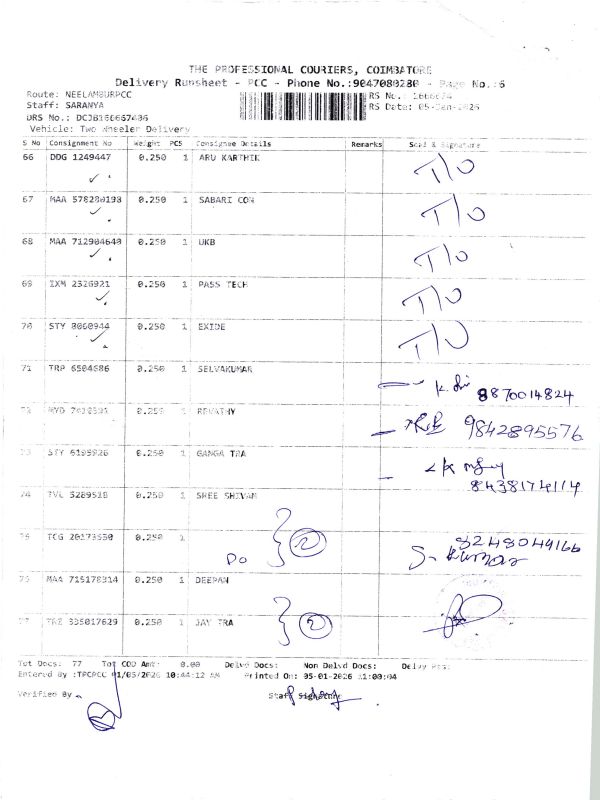 THE PROFESSIONAL COURIERS, COIMBATORE
Delivery Runsheet - PCC - Phone No.:9047080280 - Page No.:6
Route: NEELAMBURPCC
RS No.:
Staff: SARANYA
RS Date: 05-Jan-2026
DRS No.:
Vehicle: Two Wheeler Delivery
S No Consignment No Weight PCS Consignee Details Remarks Seal & Signature
66 DDG 1249447 0.250 1 ARU KARTHIK T/O
67 MAA 578280198 0.250 1 SABARI CON T/O
68 MAA 712904640 0.250 1 UKB T/O
69 IXM 2326921 0.250 1 PASS TECH T/O
70 STY 8060944 0.250 1 EXIDE T/O
71 TRP 6504686 0.250 1 SELVAKUMAR
8870014824
0.250 1 REVATHY 9842895576
0.250 1 GANGA TRA
8438174114
0.250 1 SREE SHIVAM
TCG 0.250 1 8248049166
Do 2 S. Kumar
MAA 715178314 0.250 1 DEEPAN
335017629 0.250 1 JAY TRA 2
Tot Docs: 77 Tot COD Amt: 0.00 Delvd Docs: Non Delvd Docs:
Entered By :TPCPCC 01/05/2026 10:44:12 AM Printed On: 05-01-2026 11:00:04
Verified By Staff Signature